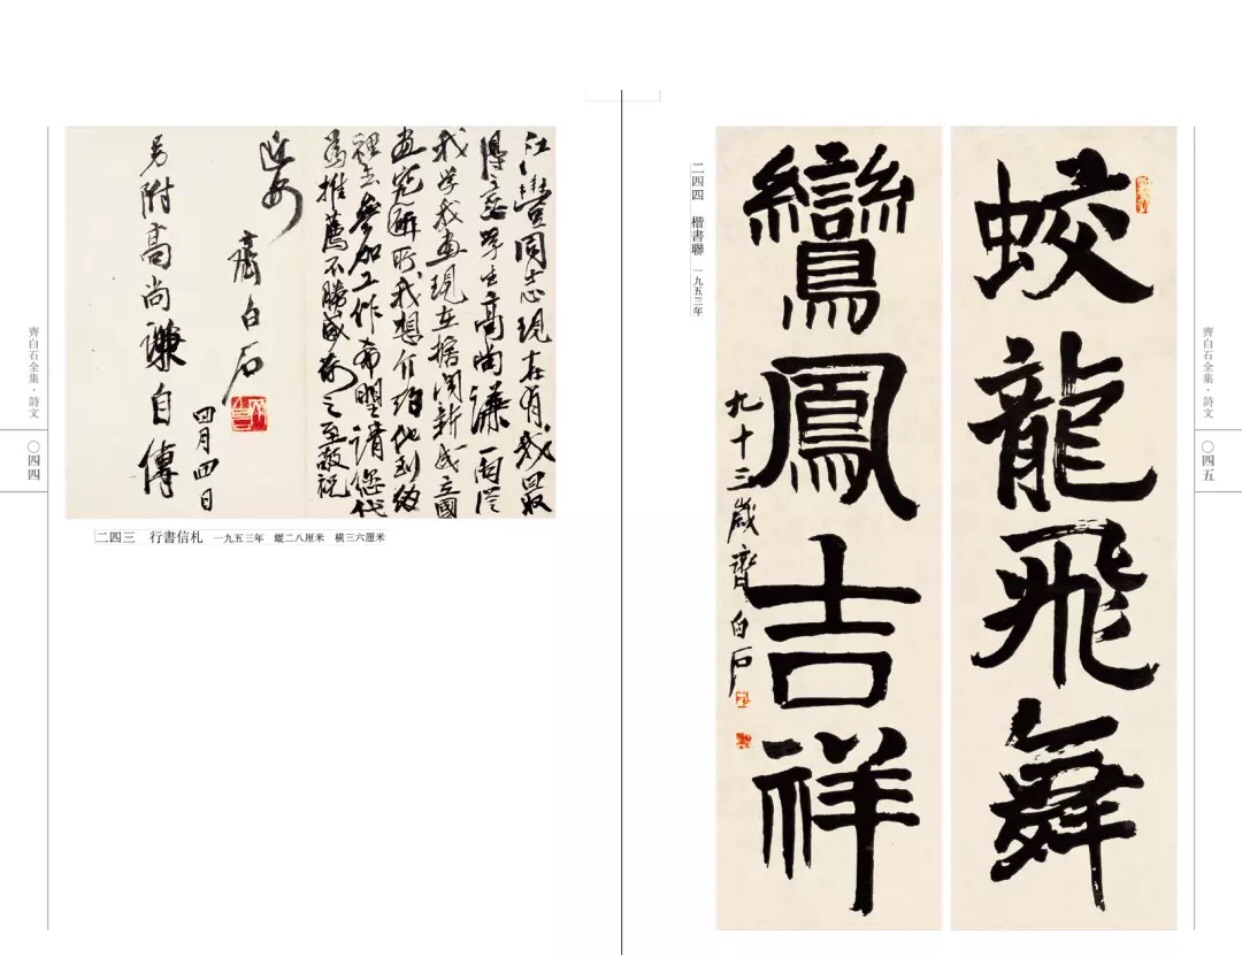 齊白石全集·詩文
〇四四
江豐同志現在有我最
得意學生高尚謙
我學我畫現在據聞新成立國
畫究研所我想介紹他到
裡去參加工作希望請您代
爲推薦不勝感荷之至敬祝
近安
齊白石
四月四日
另附高尚謙自傳
二四三 行書信札 一九五三年 縱二八厘米 橫三六厘米
蛟龍飛舞
鸞鳳吉祥
九十三歲齊白石
二四四 楷書聯 一九五三年
齊白石全集·詩文
〇四五